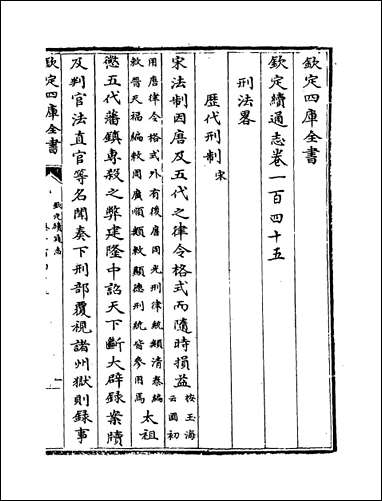 欽定四庫全書
欽定續通志卷一百四十五
刑法畧
歴代刑制宋
宋法制因唐及五代之律令格式而隨時損益按玉海云國初
用唐律令格式外有後唐同光刑律統類清泰編
敕晉天福編敕周廣順類敕顯德刑統皆參用焉太祖
懲五代藩鎮專殺之弊建隆中詔天下斷大辟錄案牘
及判官法直官等名聞奏下刑部覆視諸州獄則錄事
欽定四庫全書
欽定續通志